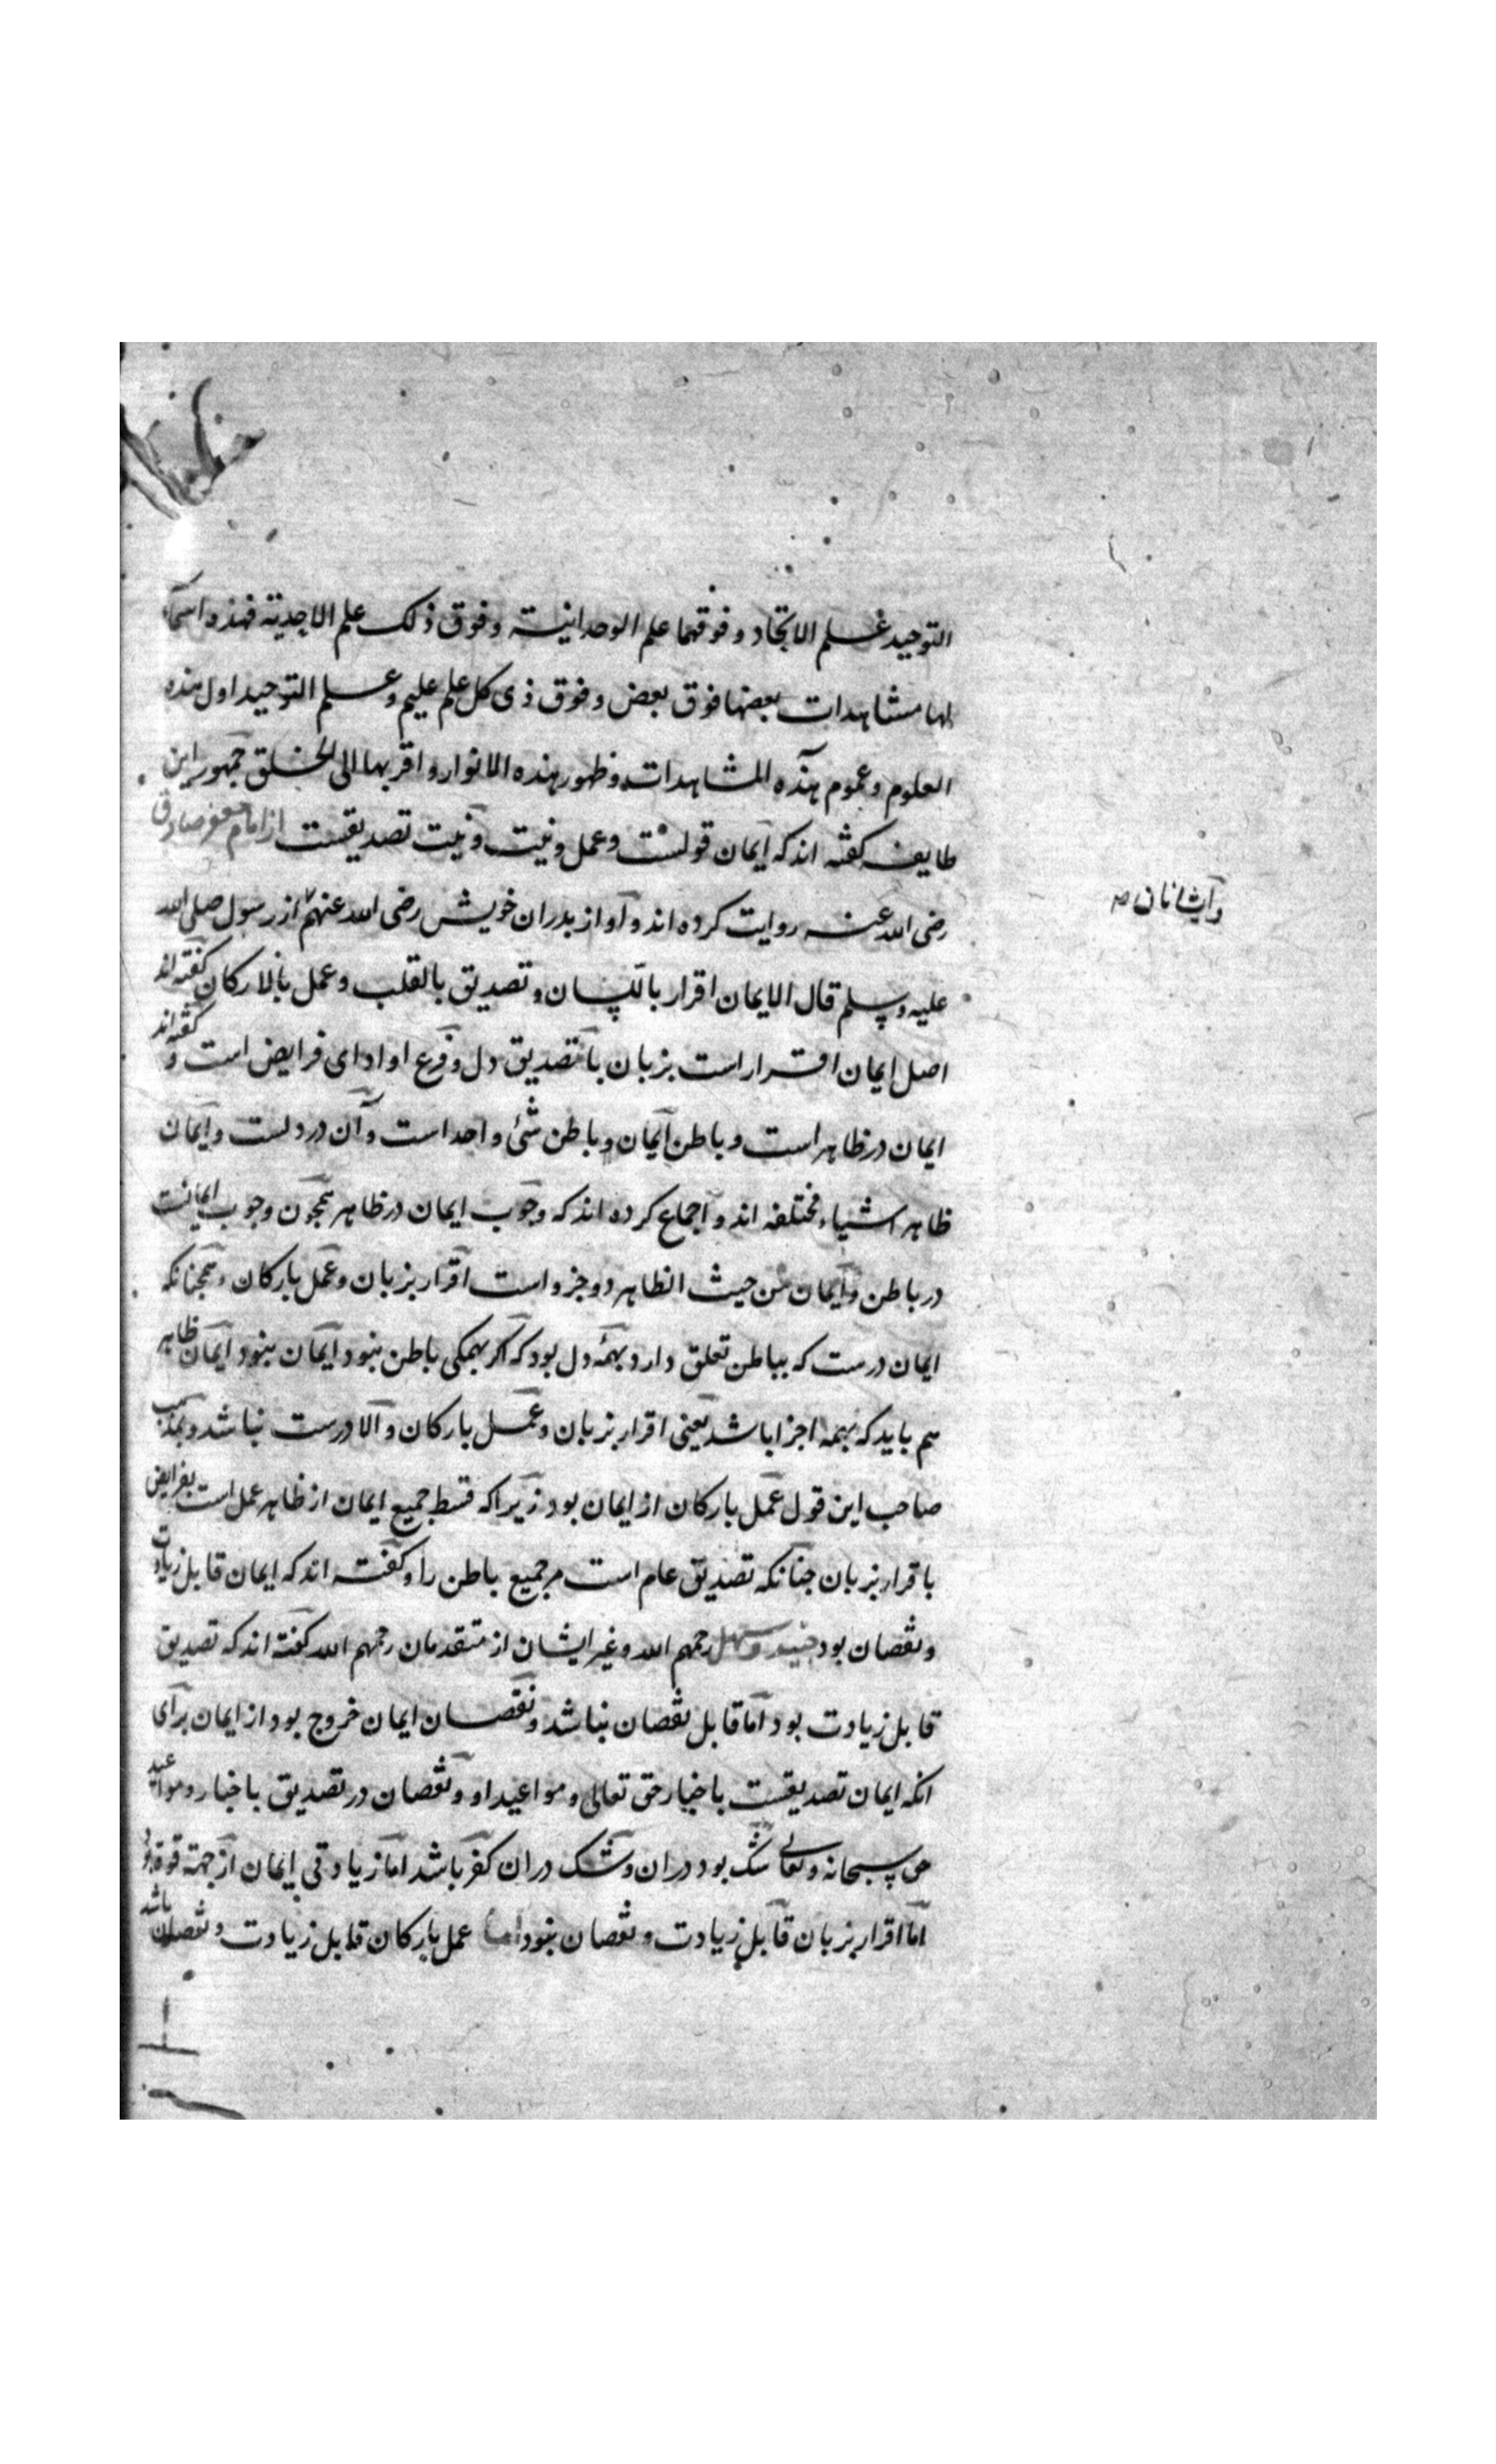 التوحید علم الاتحاد و فوقهما علم الوحدانیة و فوق ذلک علم الاحدیة فهذه اسماء
لها مشاهدات بعضها فوق بعض و فوق ذی کل علم علیم و علم التوحید اول هذه
العلوم و عموم هذه المشاهدات و ظهور هذه الانوار و اقربها الی الخلق جمهور این
طایفه کفته اند که ایمان قولست و عمل و نیت و نیت تصدیقست از امام جعفر صادق
رضی الله عنه روایت کرده اند و او از بدران خویش رضی الله عنهم از رسول صلی الله
وایشانان ص
علیه و سلم قال الایمان اقرار باللسان و تصدیق بالقلب و عمل بالارکان کفته اند
اصل ایمان اقرار است بزبان با تصدیق دل و فرع او ادای فرایض است و کفته اند
ایمان در ظاهر است و باطن ایمان و باطن شئ واحد است و آن در دلست و ایمان
ظاهر اشیاء مختلفه اند و اجماع کرده اند که وجوب ایمان در ظاهر همجون وجوب ایمانست
در باطن و ایمان من حیث الظاهر دو جزو است اقرار بزبان و عمل بارکان و همجنانکه
ایمان درست که بباطن تعلق دارد بهمه دل بود که اکر بهمکی باطن نبود ایمان نبود ایمان ظاهر
هم باید که بهمه اجزا باشد یعنی اقرار بزبان و عمل بارکان و الا درست نباشد و بمذهب
صاحب این قول عمل بارکان از ایمان بود زیراکه قسط جمیع ایمان از ظاهر عمل است بفرایض
باقرار بزبان جنانکه تصدیق عام است مر جمیع باطن را و کفته اند که ایمان قابل زیادت
و نقصان بود جنید و سهل رحمهم الله و غیر ایشان از متقدمان رحمهم الله کفته اند که تصدیق
قابل زیادت بود اما قابل نقصان نباشد و نقصان ایمان خروج بود از ایمان برای
انکه ایمان تصدیقست باخبار حق تعالی و مواعید او و نقصان در تصدیق باخبار و مواعید
حق سبحانه و تعالی شک بود دران و شک دران کفر باشد اما زیادتی ایمان از جهة قوة بود
اما اقرار بزبان قابل زیادت و نقصان نبود اما عمل بارکان قابل زیادت و نقصان باشد